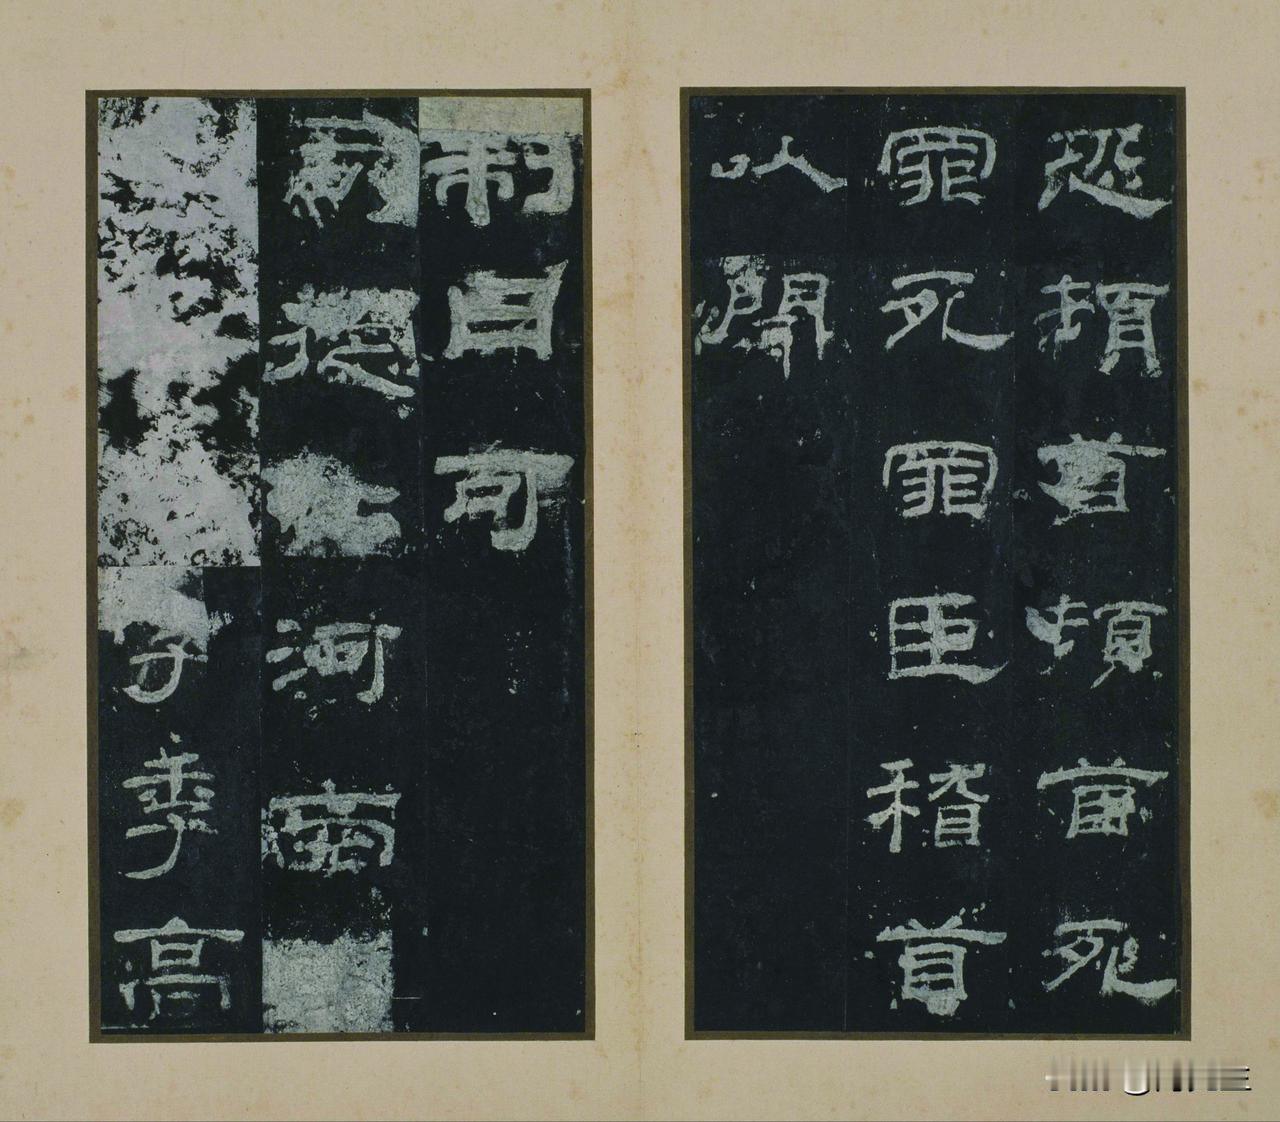 恐頓首頓首死
罪死罪臣稽首
以聞
制曰可
司徒公河南
字季高